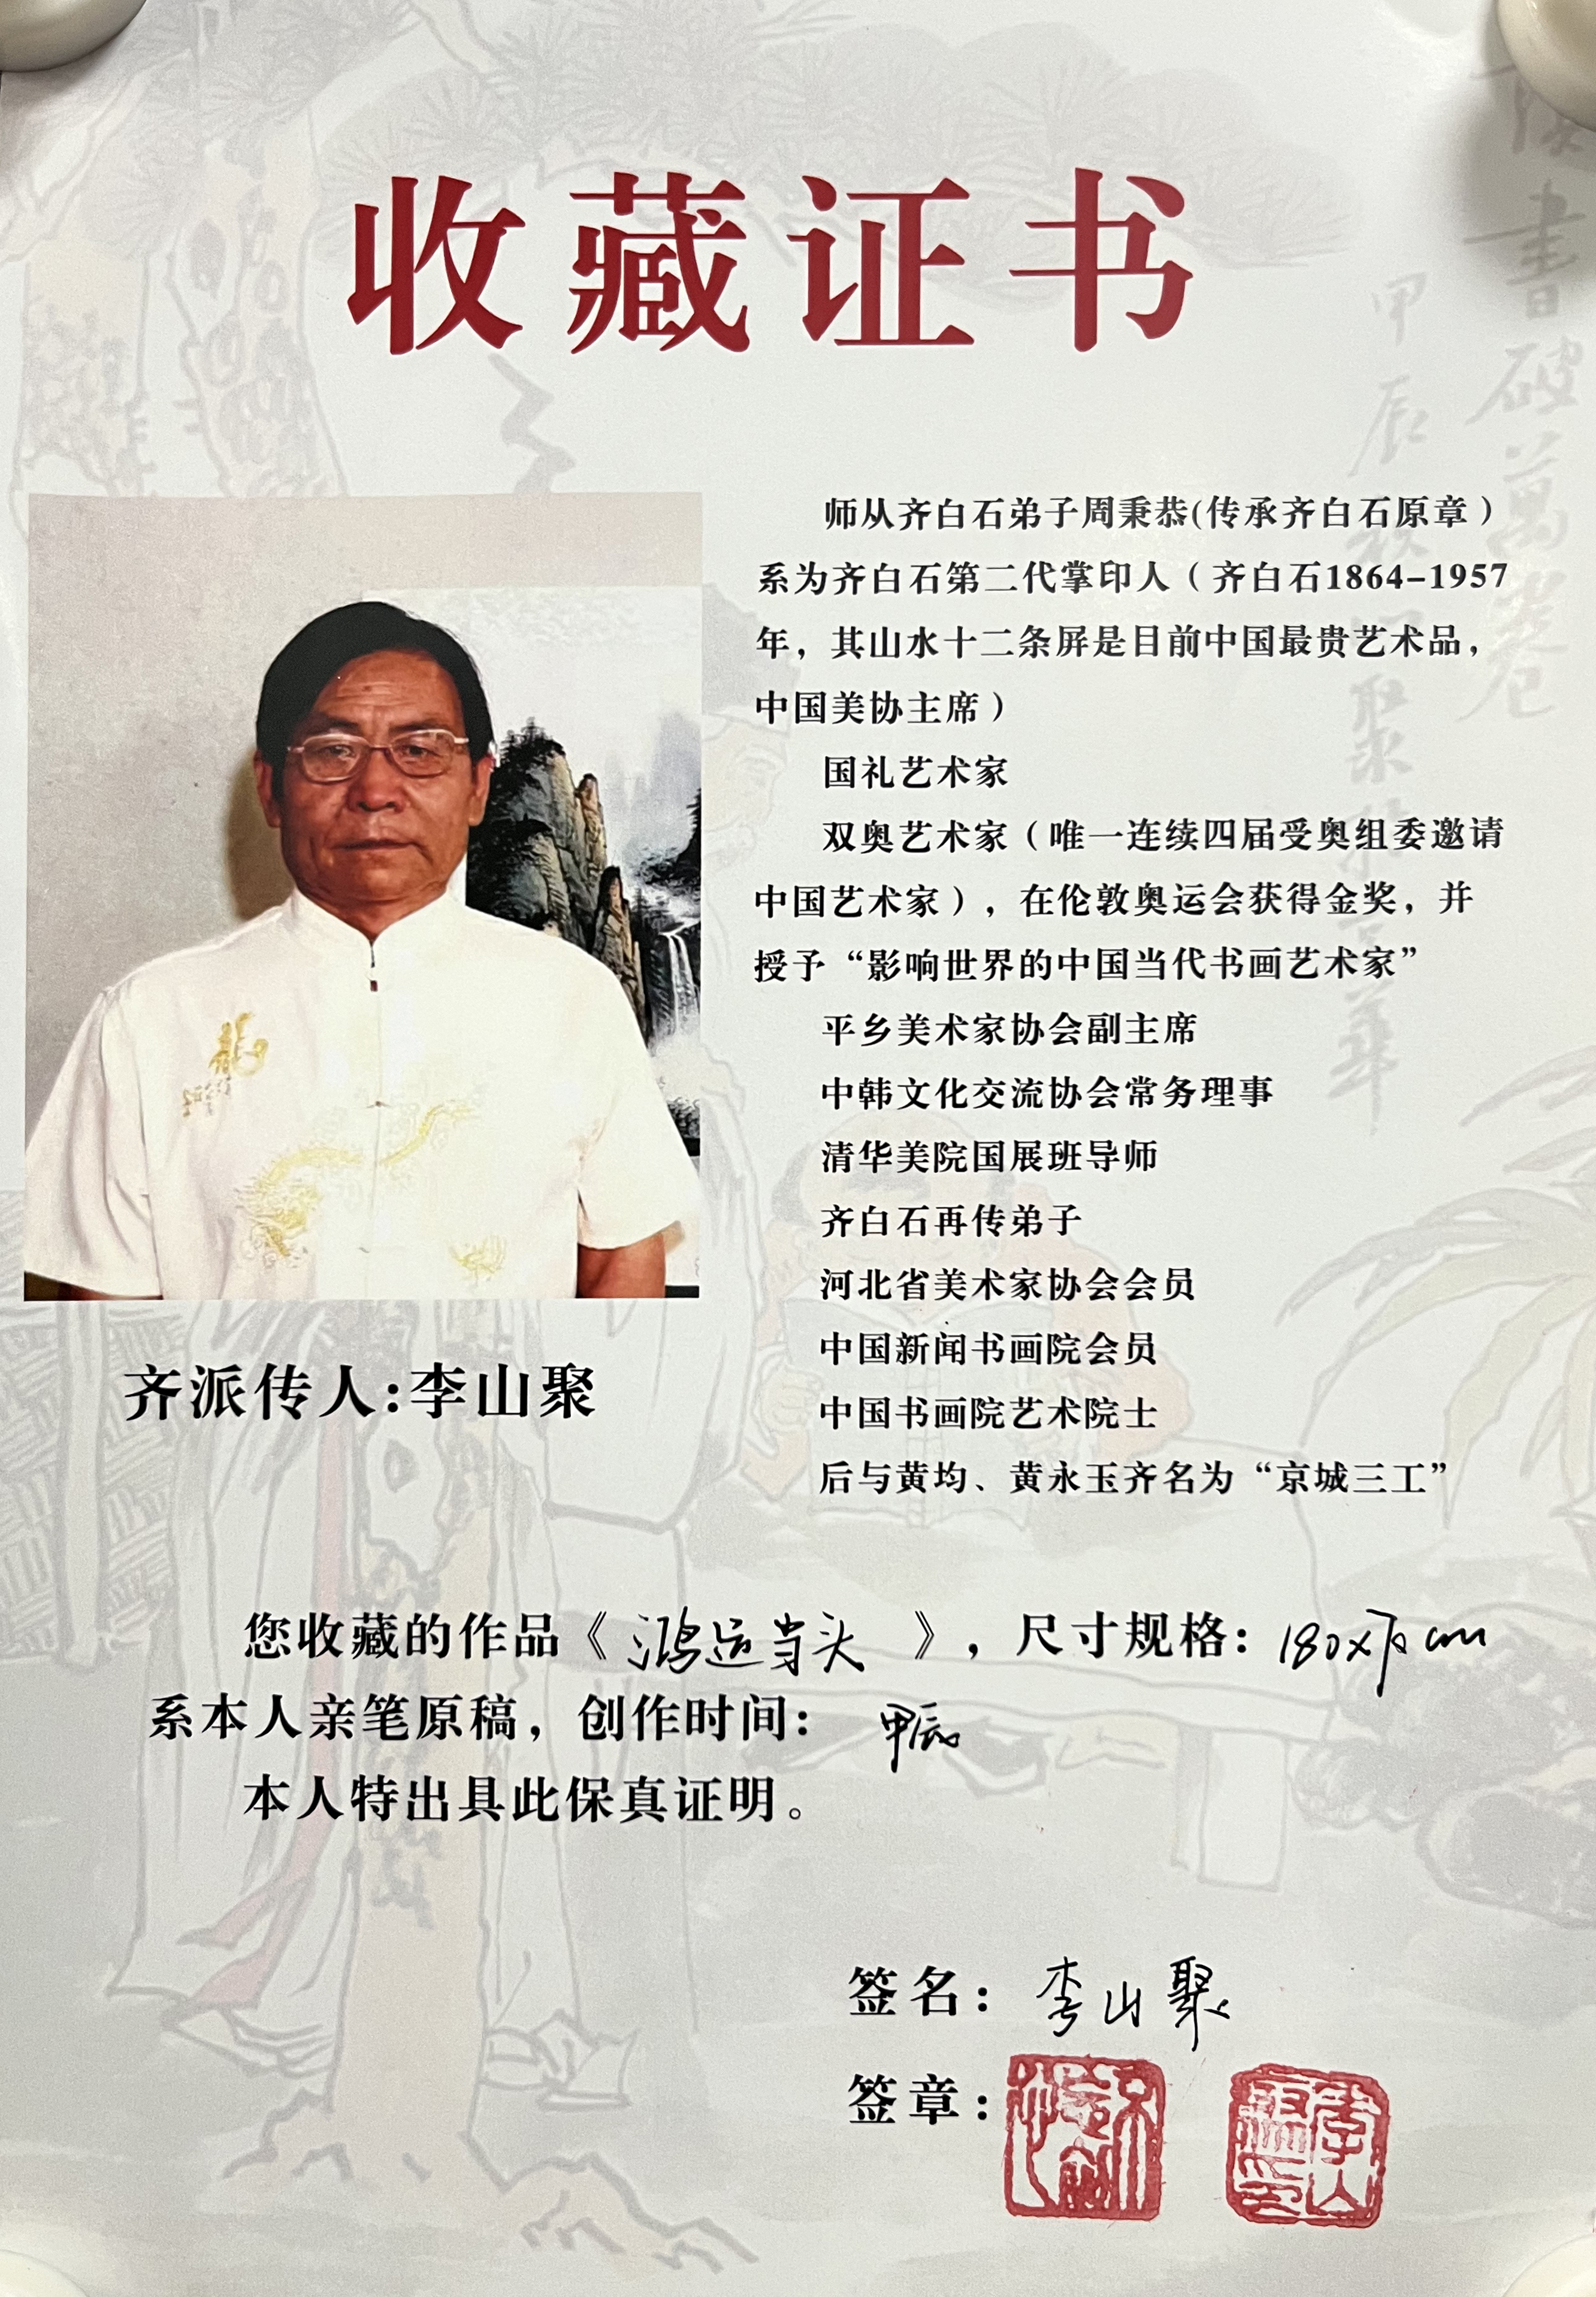 收藏证书
师从齐白石弟子周秉恭(传承齐白石原章）
系为齐白石第二代掌印人（齐白石1864-1957
年，其山水十二条屏是目前中国最贵艺术品，
中国美协主席）
国礼艺术家
双奥艺术家（唯一连续四届受奥组委邀请
中国艺术家），在伦敦奥运会获得金奖，并
授予“影响世界的中国当代书画艺术家”
平乡美术家协会副主席
中韩文化交流协会常务理事
清华美院国展班导师
齐白石再传弟子
河北省美术家协会会员
中国新闻书画院会员
中国书画院艺术院士
后与黄均、黄永玉齐名为“京城三工”
齐派传人:李山聚
您收藏的作品《鸿运当头》，尺寸规格：180x cm
系本人亲笔原稿，创作时间：甲辰
本人特出具此保真证明。
签名：李山聚
签章：
李山聚印
書破萬卷
甲辰